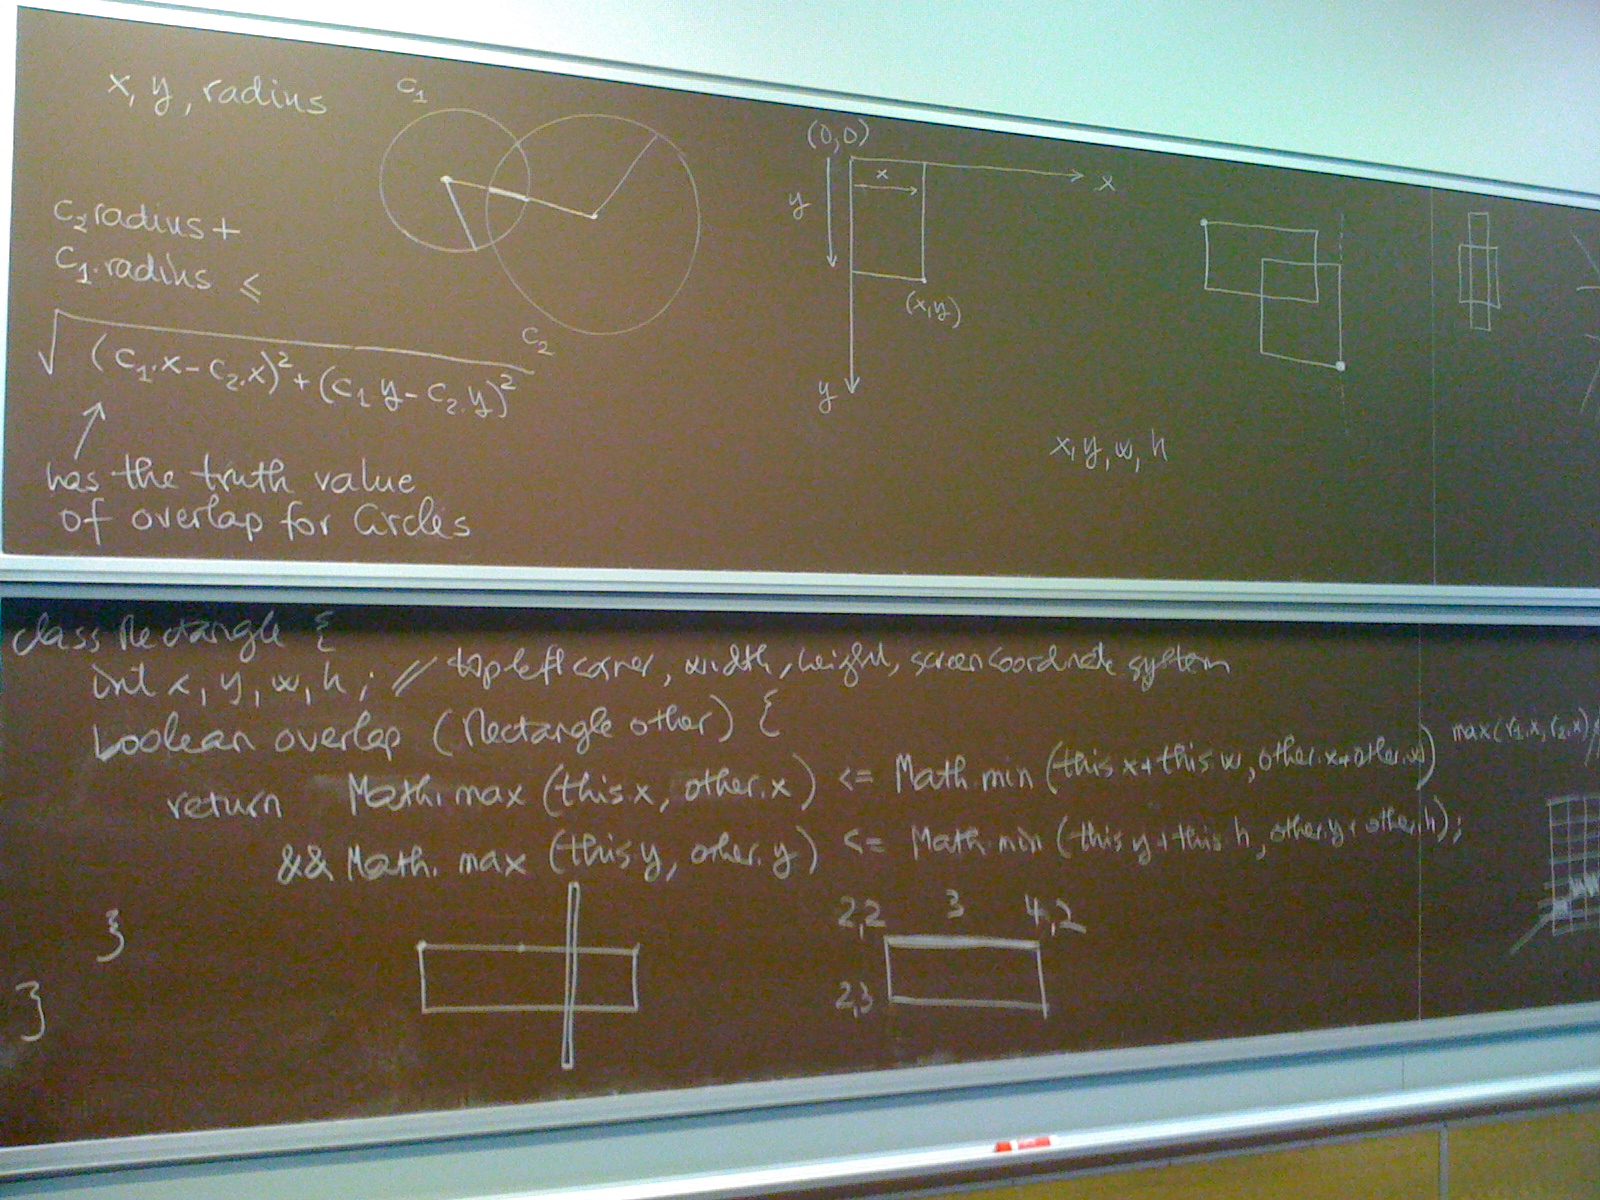 x, y, radius
C1
C2 radius +
C1.radius ≤
√(C1.x - C2.x)² + (C1 y - C2.y)²
C2
has the truth value
of overlap for Circles
(0,0)
x
x
y
(x,y)
y
x, y, w, h
class Rectangle {
int x, y, w, h; // top left corner, width, height, screen coordinate system
boolean overlap (Rectangle other) {
return Math.max (this.x, other.x) <= Math.min (this x + this w, other.x + other.w)
&& Math. max (this y, other. y) <= Math.min (this y + this h, other.y + other.h);
}
}
max(r1.x, r2.x)
2,2 3 4,2
2,3